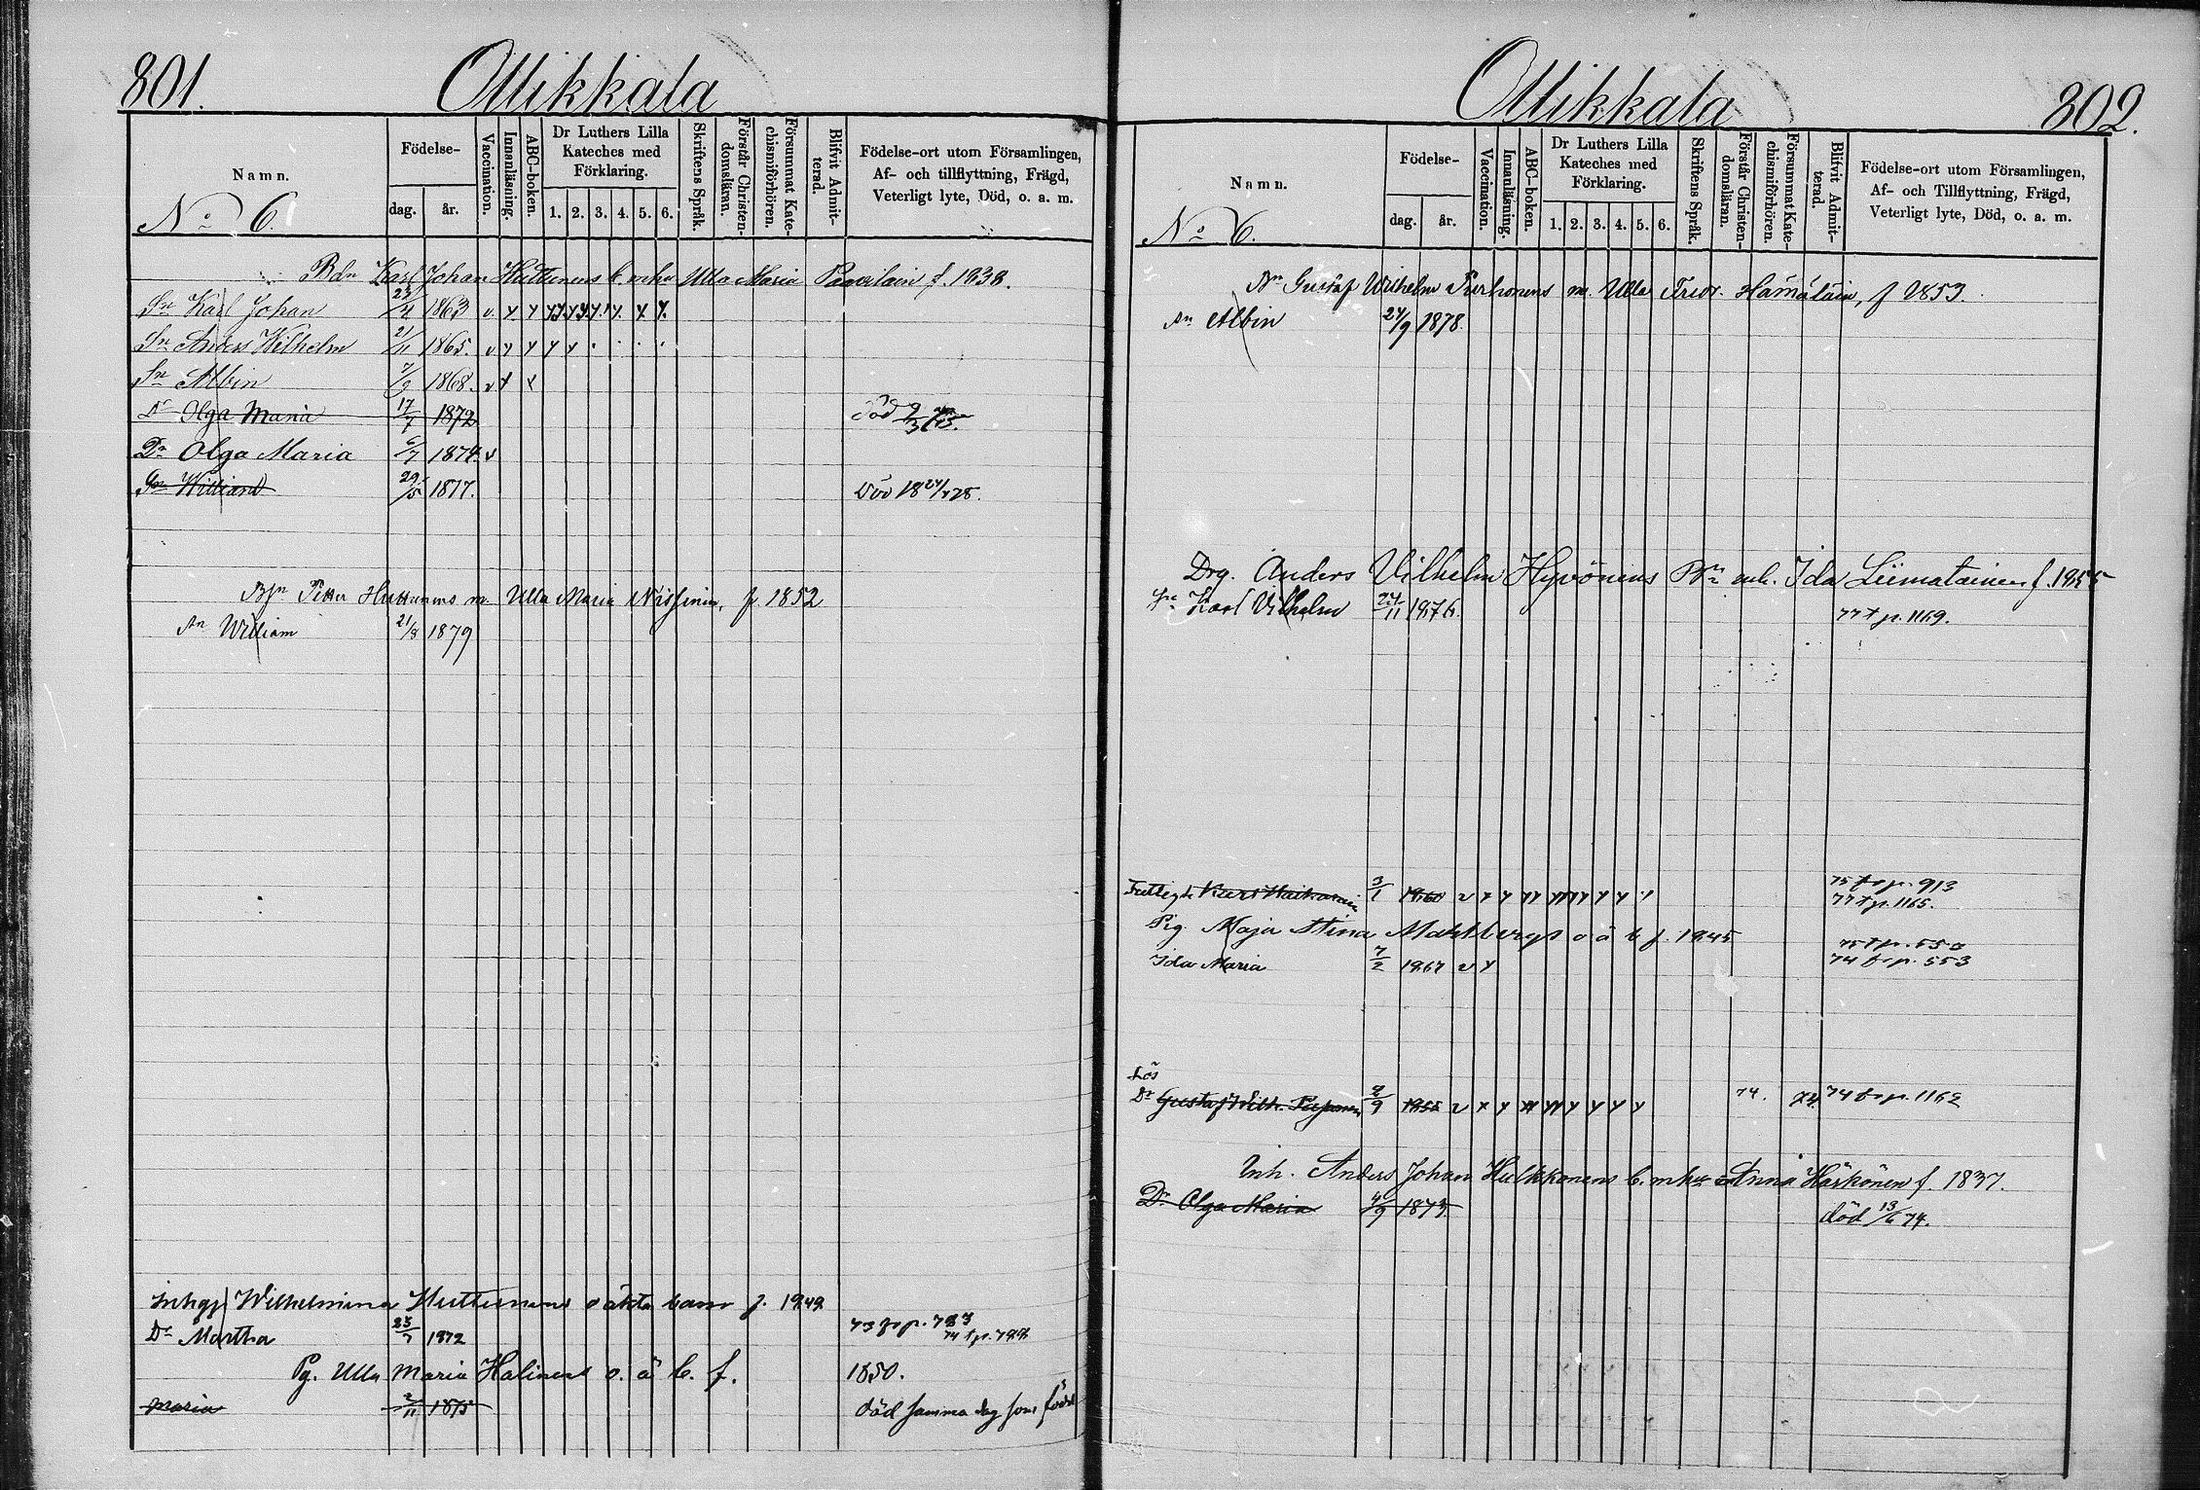 801.
Ollikkala
Namn.
Födelse-
dag.
år.
Vaccination.
Innanläsning.
ABC-boken.
Dr Luthers Lilla
Kateches med
Förklaring.
1. 2. 3. 4. 5. 6.
Skriftens Språk.
Förstår Christen-
domsläran.
Försummat Kate-
chismiförhören.
Blifvit Admit-
terad.
Födelse-ort utom Församlingen,
Af- och tillflyttning, Frägd,
Veterligt lyte, Död, o. a. m.
No 6.
Bdn Karl Johan Huttunens b. m. hu Ulla Maria f. 1838.
Sn Karl Johan 1863 v
Sn Anders Wilhelm 21/11 1865. v
Sn Albin 7/9 1868. v
Dr Olga Maria 17/7 1872 död
Dr Olga Maria 6/7 1874. v
Sn 29/5 1877.
Petter Huttunens m. Ulla Maria Nissinen, f. 1852
Sn William 21/8 1879
Wilhelmina Huttunens oäkta barn f. 1849
Dr Martha 23/7 1872 73 fr p. 783
74 t p. 788
Pg. Ulla Maria Halinens o. ä b. f. 1850.
Maria 2/11 1875 död samma dag som född
802.
Ollikkala
Namn.
Födelse-
dag.
år.
Vaccination.
Innanläsning.
ABC-boken.
Dr Luthers Lilla
Kateches med
Förklaring.
1. 2. 3. 4. 5. 6.
Skriftens Språk.
Förstår Christen-
domsläran.
Försummat Kate-
chismiförhören.
Blifvit Admit-
terad.
Födelse-ort utom Församlingen,
Af- och Tillflyttning, Frägd,
Veterligt lyte, Död, o. a. m.
No 6.
Gustaf Wilhelm m. Ulla Hämäläin, f 1853.
Sn Albin 27/9 1878.
Drg. Anders Vilhelm Hyvönens Bn m.h. Ida Liimatainen f. 1855
Sn Karl Vilhelm 24/11 1876. 77 t p. 1169.
3/1 1860 v 75 fr p. 913
77 t p. 1165.
Pig. Maja Stina o ä b f. 1845
75 t p. 550
Ida Maria 7/2 1867 v 74 fr p. 553
Lös
Dr Gustaf Vilh. 1855 v 74. 74 74 fr p. 1162
Inh. Anders Johan Hulkkonens b. m. hu Anna Härkönen f. 1837.
Dr Olga Maria 4/9 1873. död 13/6 74.